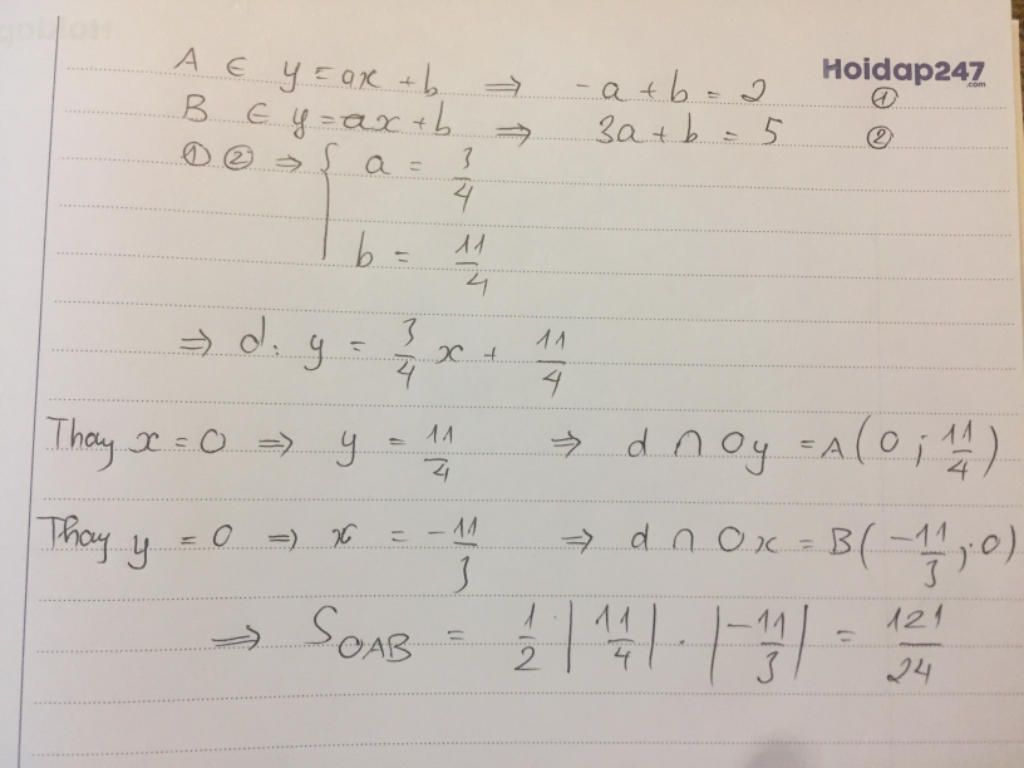 A ∈ y = ax + b ⇒ -a + b = 2 ①
Hoidap247.com
B ∈ y = ax + b ⇒ 3a + b = 5 ②
① ② ⇒ { a = 3/4
b = 11/4
⇒ d: y = 3/4 x + 11/4
Thay x = 0 ⇒ y = 11/4 ⇒ d ∩ Oy = A(0; 11/4)
Thay y = 0 ⇒ x = -11/3 ⇒ d ∩ Ox = B(-11/3; 0)
⇒ S_OAB = 1/2 |11/4| . |-11/3| = 121/24